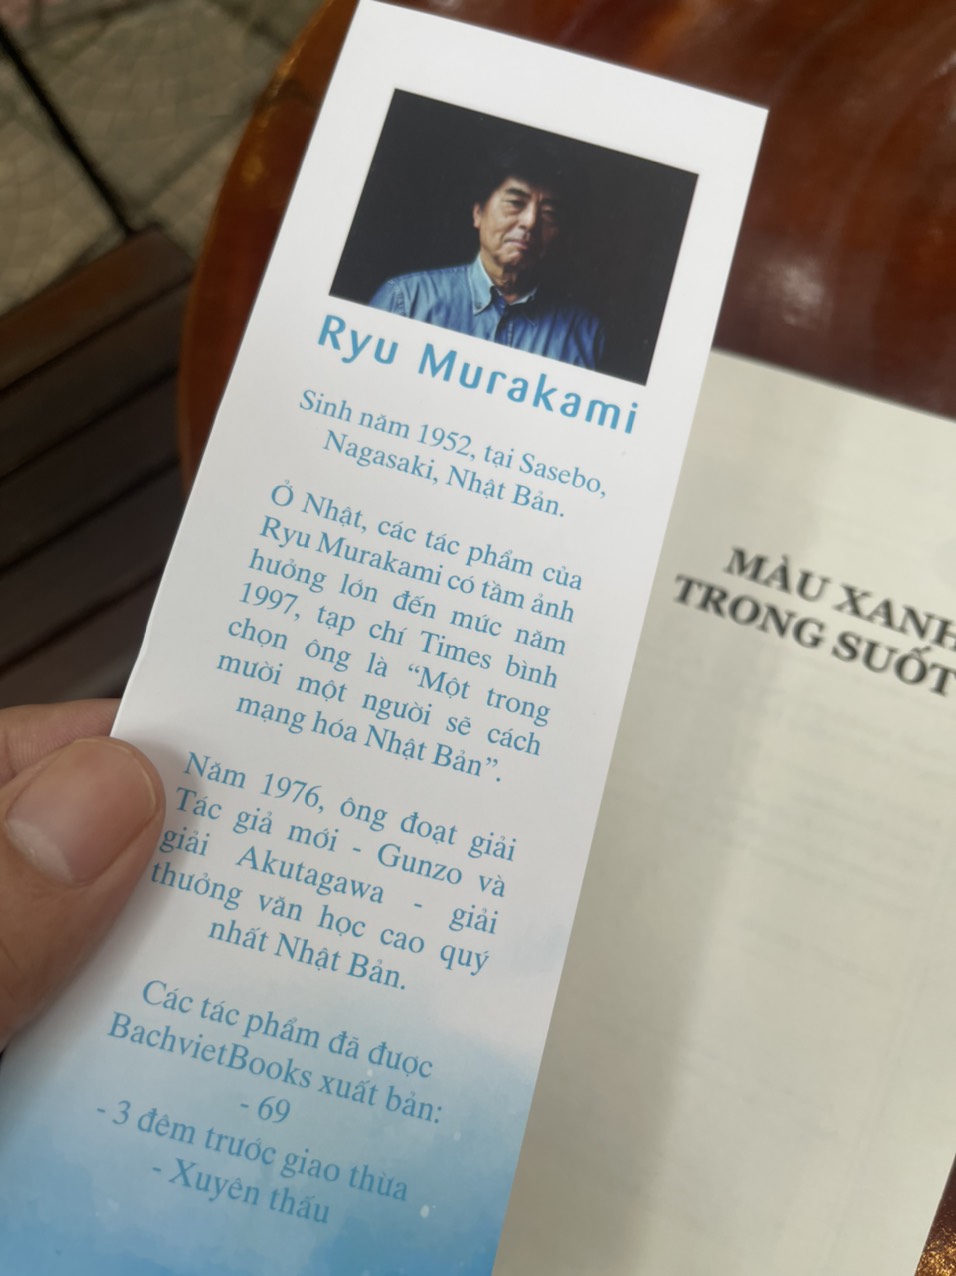 Ryu Murakami
Sinh năm 1952, tại Sasebo,
Nagasaki, Nhật Bản.
Ở Nhật, các tác phẩm của
Ryu Murakami có tầm ảnh
hưởng lớn đến mức năm
1997, tạp chí Times bình
chọn ông là “Một trong
mười một người sẽ cách
mạng hóa Nhật Bản”.
Năm 1976, ông đoạt giải
Tác giả mới - Gunzo và
giải Akutagawa - giải
thưởng văn học cao quý
nhất Nhật Bản.
Các tác phẩm đã được
BachvietBooks xuất bản:
- 69
- 3 đêm trước giao thừa
- Xuyên thấu
MÀU XANH
TRONG SUỐT